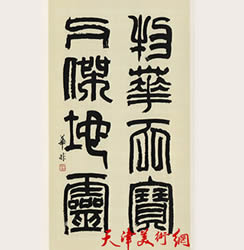 物華天寶
人傑地靈
華非
天津美術網